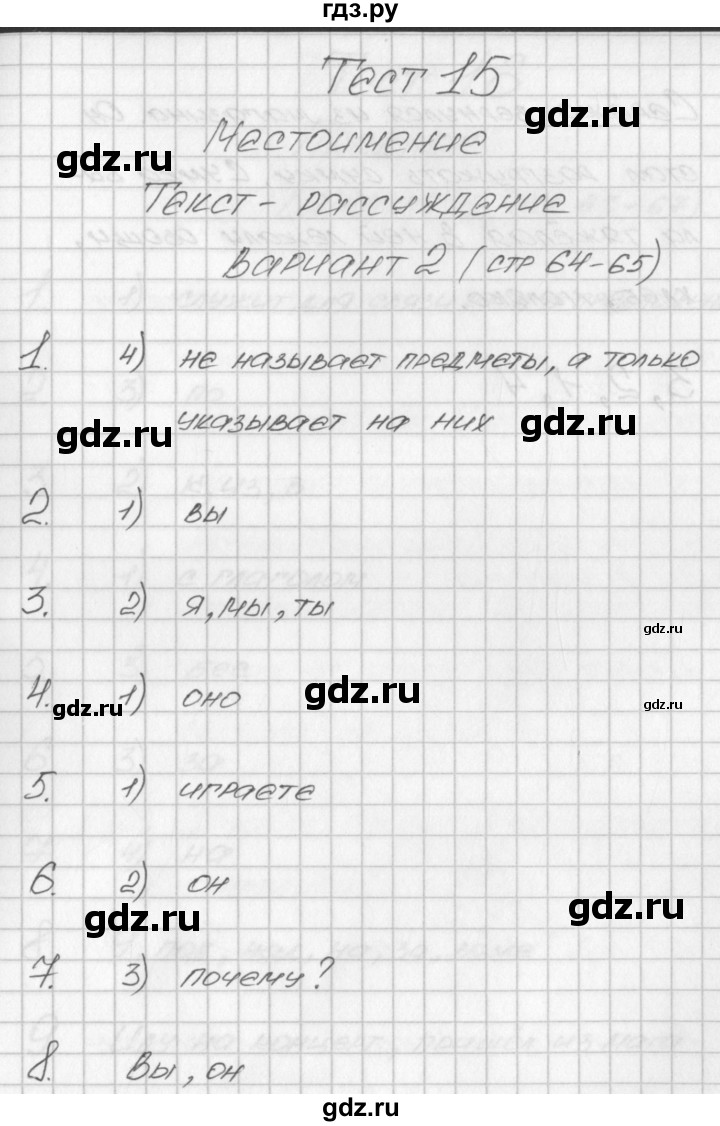 гдз.ру
Тест 15
gdz.ru
Местоимение
gdz.ru
Текст - рассуждение
Вариант 2 (стр 64-65)
1. 4) не называет предметы, а только
указывает на них
gdz.ru
gdz.ru
2. 1) вы
3. 2) я, мы, ты
gdz.ru
4. 1) оно
gdz.ru
gdz.ru
gdz.ru
5. 1) играете
6. 2) он
gdz.ru
gdz.ru
7. 3) почему?
8. Вы, он
gdz.ru